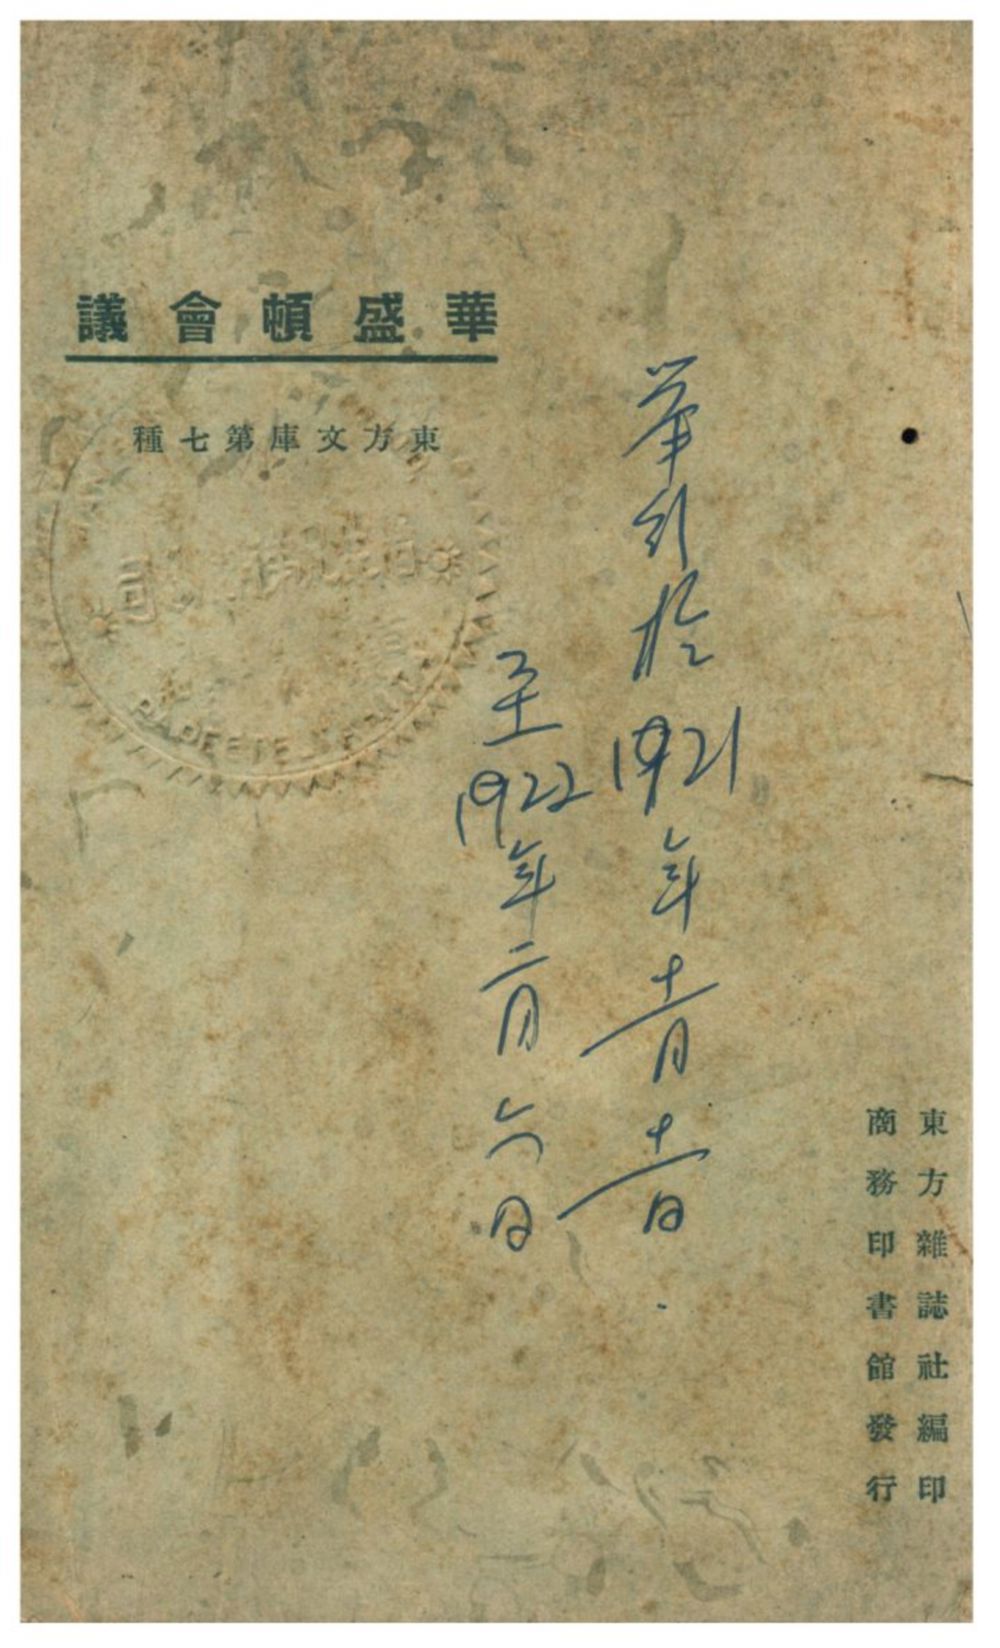 華盛頓會議
東方文庫第七種
舉행於1921年十一月十一日
至1922年二月六日
東方雜誌社編印
商務印書館發行
PAPEETE